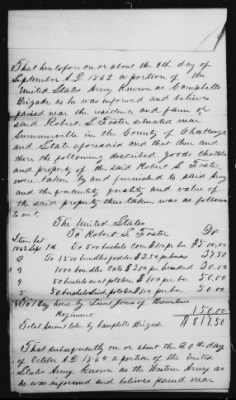 That heretofore on or about the 9th day of
September A.D. 1863 a portion of the
United States Army Known as Campbells
Brigade as he was informed and believes
passed near the residence and farm of
said Robert S. Foster situated near
Summerville in the County of Chattooga
and State aforesaid and that then and
there the following described goods chattels
and property of the said Robert S. Foster
were taken by and furnished to said Army
and the quantity quality and value of
the said property thus taken was as follows
to wit.
The United States
To Robert S. Foster Dr
Sept 9th To 500 bushels Corn 1.00 per bu $500.00
2 To 15.00 bundles fodder 37.50
3 1000 bundles Oats 30.00
4 50 bushels potatoes 1.00 per bu 50.00
5 50 bushels per bu 50.00
Regiment 150.00
Total by Campbells Brigade $817.50
That subsequently on or about the 20th day
of October A.D. 186 a portion of the United
States Army Known as the Western Army as
he was informed and believes passed near